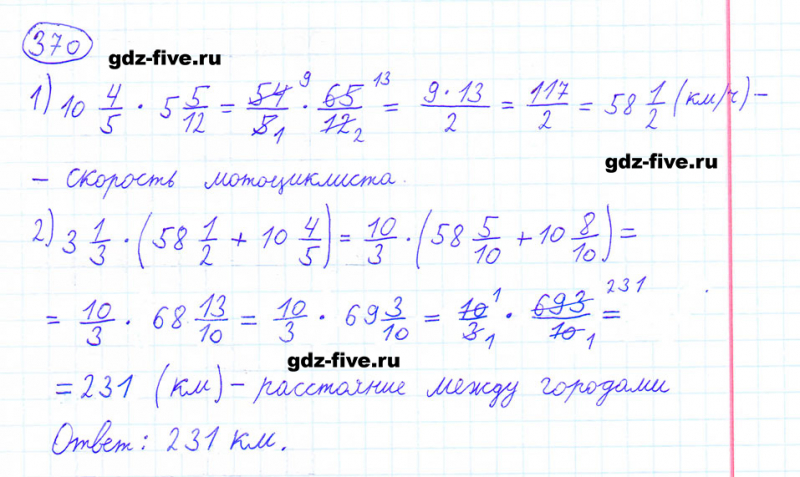 370
gdz-five.ru
1) 10 4/5 · 5 5/12 = 54/5 · 65/12 = (9·13)/2 = 117/2 = 58 1/2 (км/ч) –
9 13
1 2
gdz-five.ru
– скорость мотоциклиста.
2) 3 1/3 · (58 1/2 + 10 4/5) = 10/3 · (58 5/10 + 10 8/10) =
= 10/3 · 68 13/10 = 10/3 · 69 3/10 = 10/3 · 693/10 =
1 231
1 1
gdz-five.ru
= 231 (км) – расстояние между городами
Ответ: 231 км.